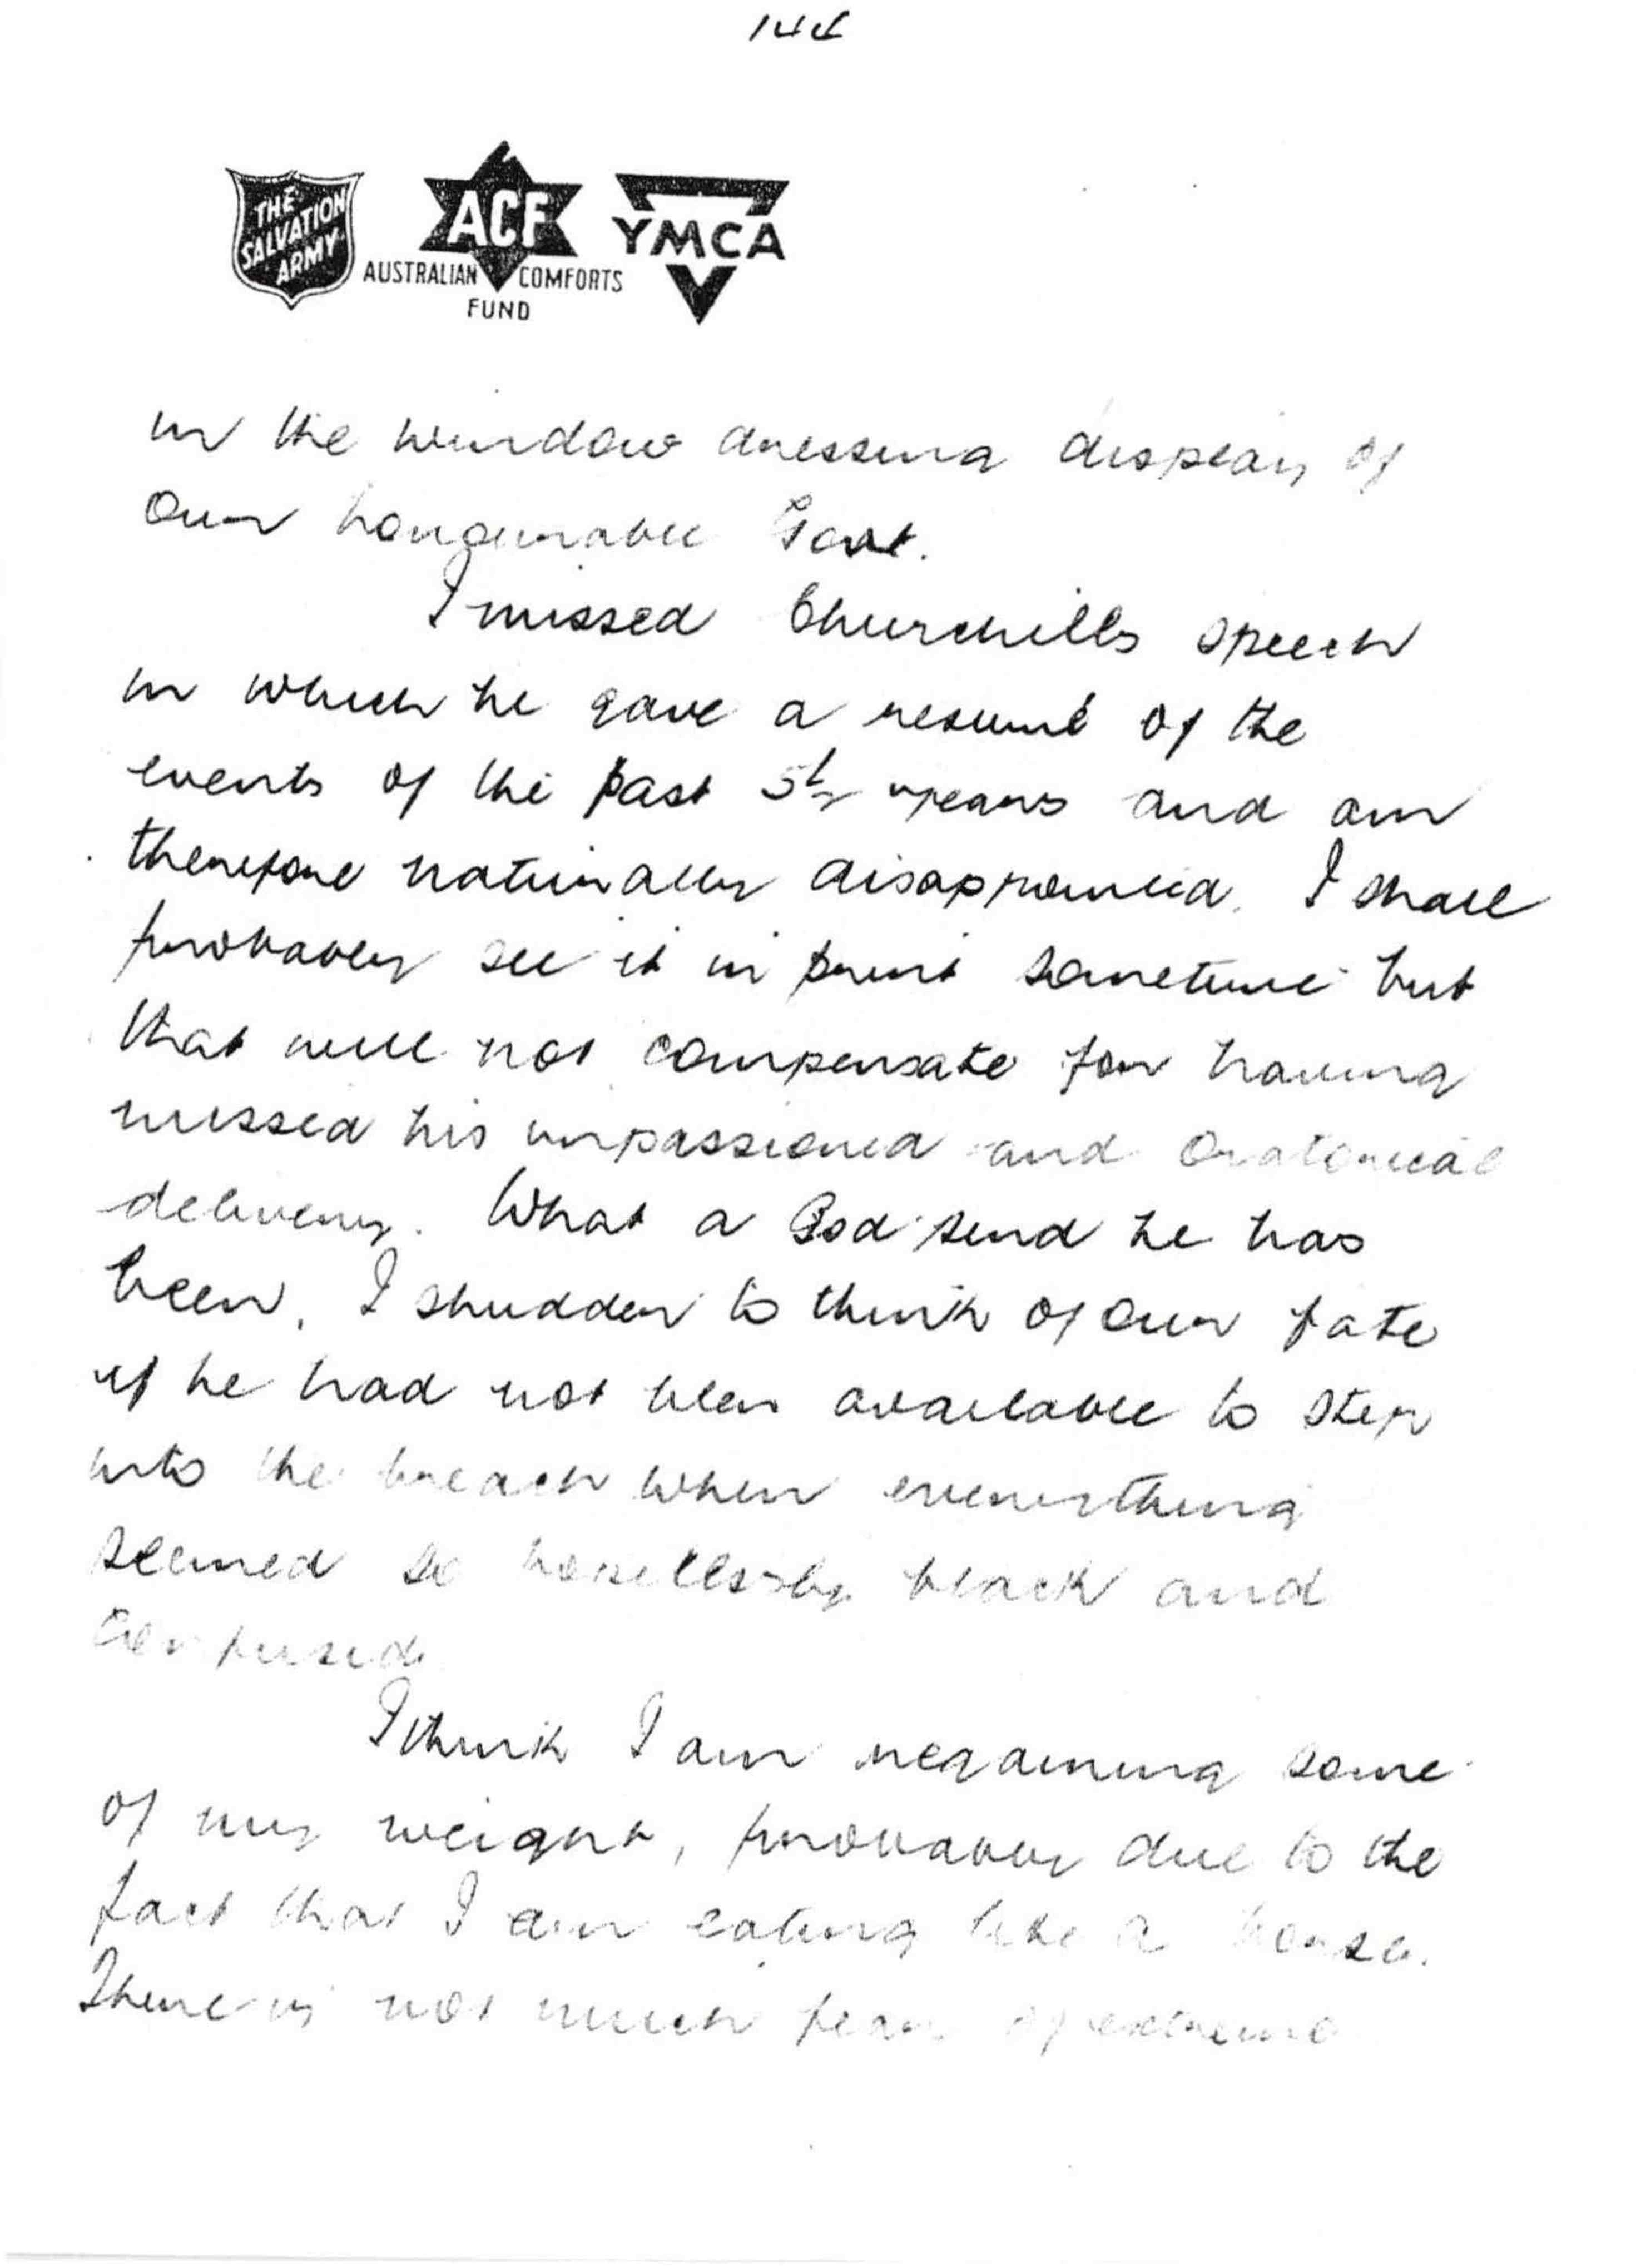 144
THE SALVATION ARMY
ACF
AUSTRALIAN COMFORTS FUND
YMCA
in the window dressing display of
our honourable Govt.
I missed Churchills speech
in which he gave a resumé of the
events of the past 5½ years and am
therefore naturally disappointed. I shall
probably see it in print sometime but
that will not compensate for having
missed his impassioned and oratorical
delivery. What a God send he has
been. I shudder to think of our fate
if he had not been available to step
into the breach when everything
seemed so hopelessly black and
confused
I think I am regaining some
of my weight, probably due to the
fact that I am eating like a horse.
There is not much fear of extreme